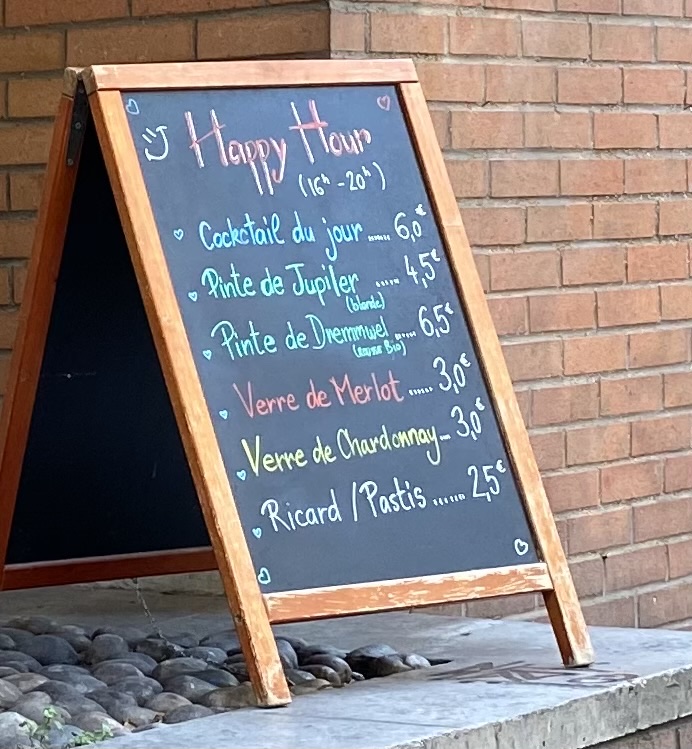 Happy Hour
(16h - 20h)
Cocktail du jour ...... 6,0€
Pinte de Jupiler ..... 4,5€
(blonde)
Pinte de Dremmwel ..... 6,5€
Bio)
Verre de Merlot ...... 3,0€
Verre de Chardonnay - 3,0€
Ricard / Pastis ...... 2,5€